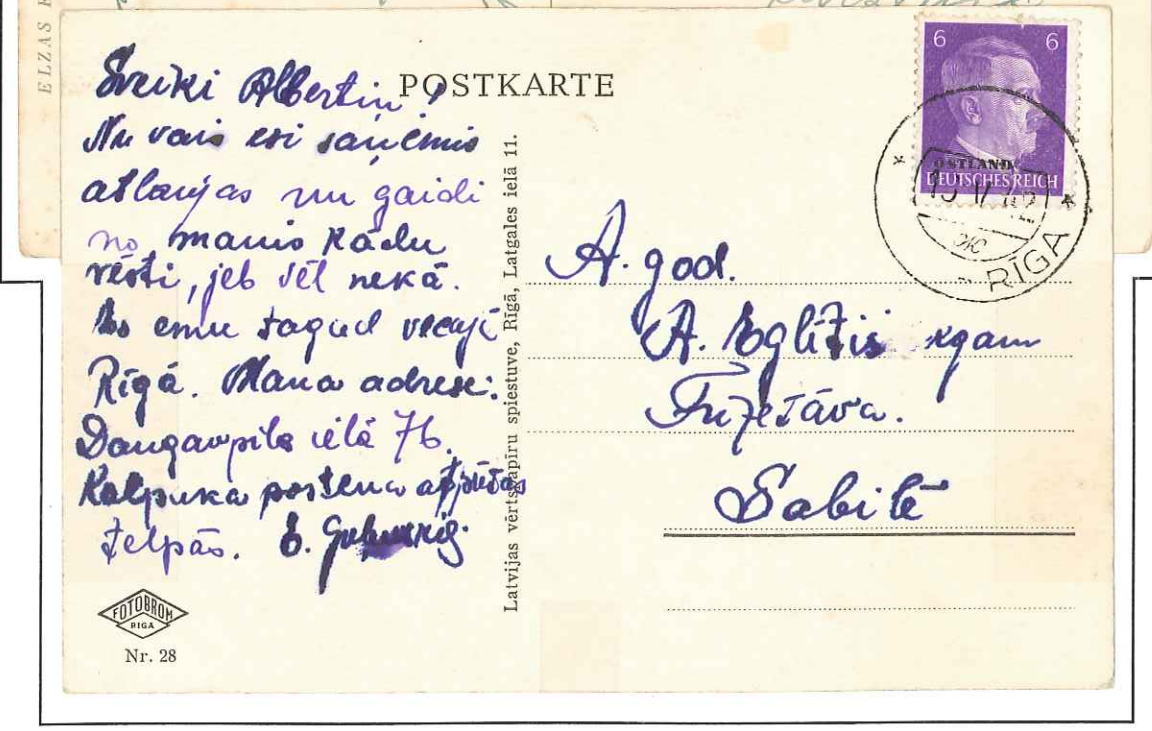 ELZAS
POSTKARTE
Sveiki Albertiņ!
Nu vais esi saņēmis
atļaujas un gaidi
no manis kādu
vēsti, jeb vēl nekā.
Es esmu tagad vecajā
Rīgā. Mana adrese:
Daugavpils ielā 76.
Kalpaka postena atpūtas
telpās. E.
FOTOBROM
RIGA
Nr. 28
Latvijas vērtspapīru spiestuve, Rīgā, Latgales ielā 11.
6 6
OSTLAND
DEUTSCHES REICH
V 42
RĪGA
A. god.
A. Eglītis kgam
Sabilē